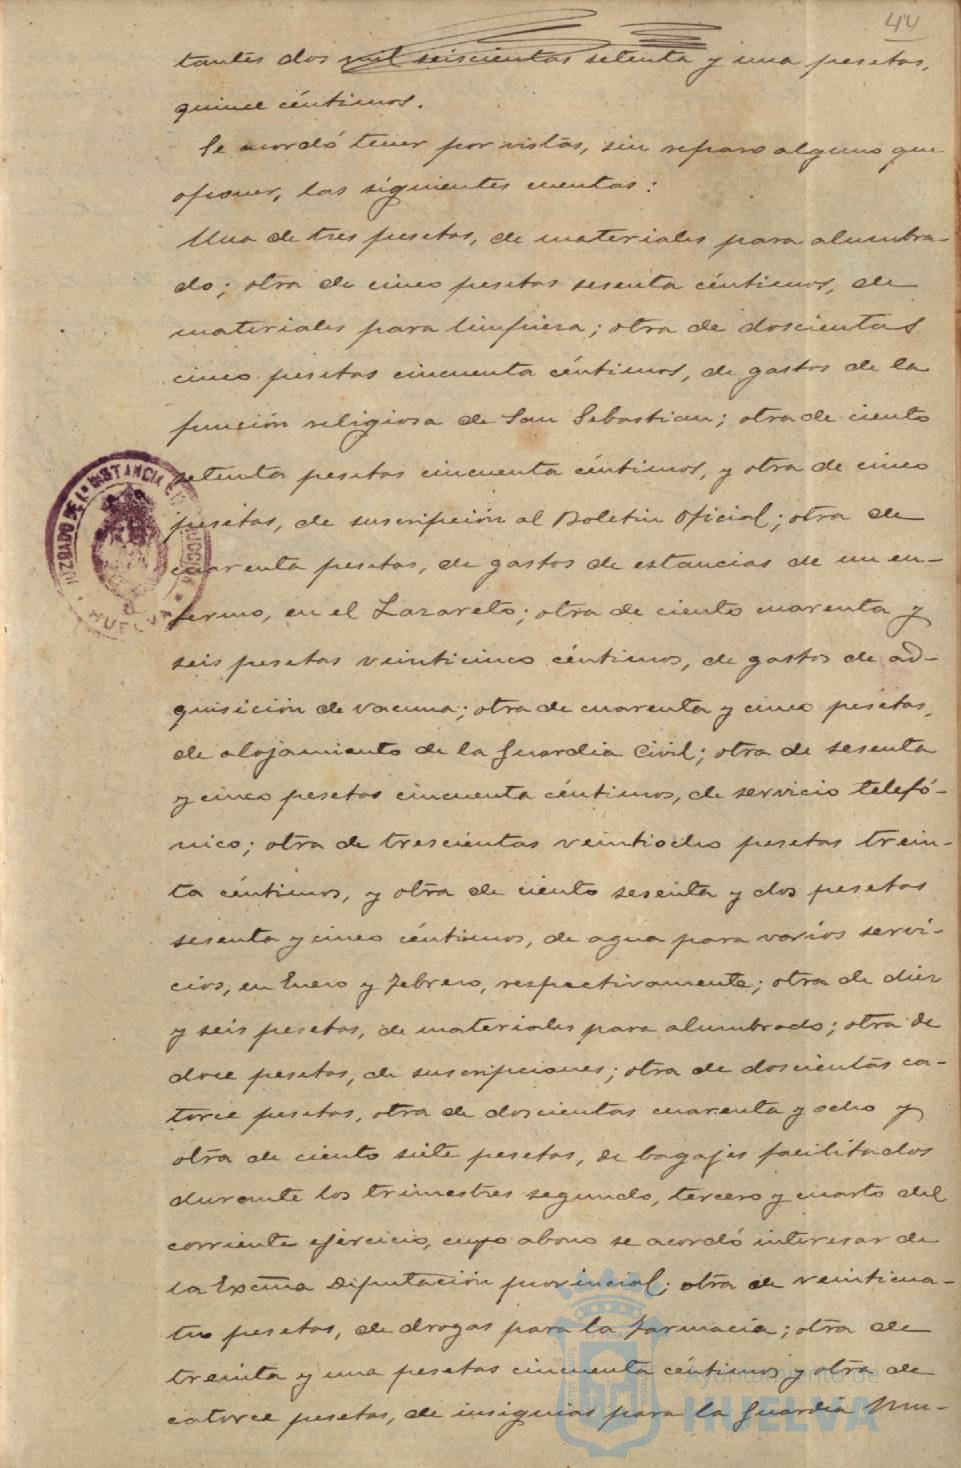 44
tantes dos mil seiscientas setenta y una pesetas,
quince céntimos.
Se acordó tener por vistas, sin reparo alguno que
oponer, las siguientes cuentas:
Una de tres pesetas, de materiales para alumbra-
do; otra de cinco pesetas sesenta céntimos, de
materiales para limpieza; otra de doscientas
cinco pesetas cincuenta céntimos, de gastos de la
función religiosa de San Sebastian; otra de ciento
setenta pesetas cincuenta céntimos, y otra de cinco
pesetas, de suscripción al Boletin Oficial; otra de
cuarenta pesetas, de gastos de estancias de un en-
fermo, en el Lazareto; otra de ciento cuarenta y
seis pesetas veinticinco céntimos, de gastos de ad-
quisición de vacuna; otra de cuarenta y cinco pesetas,
de alojamiento de la Guardia Civil; otra de sesenta
y cinco pesetas cincuenta céntimos, de servicio telefó-
nico; otra de trescientas veintiocho pesetas trein-
ta céntimos, y otra de ciento sesenta y dos pesetas
sesenta y cinco céntimos, de agua para varios servi-
cios, en Enero y Febrero, respectivamente; otra de diez
y seis pesetas, de materiales para alumbrado; otra de
doce pesetas, de suscripciones; otra de doscientas ca-
torce pesetas, otra de doscientas cuarenta y ocho y
otra de ciento siete pesetas, de bagajes facilitados
durante los trimestres segundo, tercero y cuarto del
corriente ejercicio, cuyo abono se acordó interesar de
la Excma Diputación provincial; otra de veinticua-
tro pesetas, de drogas para la farmacia; otra de
treinta y una pesetas cincuenta céntimos y otra de
catorce pesetas, de insignias para la Guardia Mu-
JUZGADO DE 1ª INSTANCIA E INSTRUCCIÓN
HUELVA
Ayuntamiento de
HUELVA